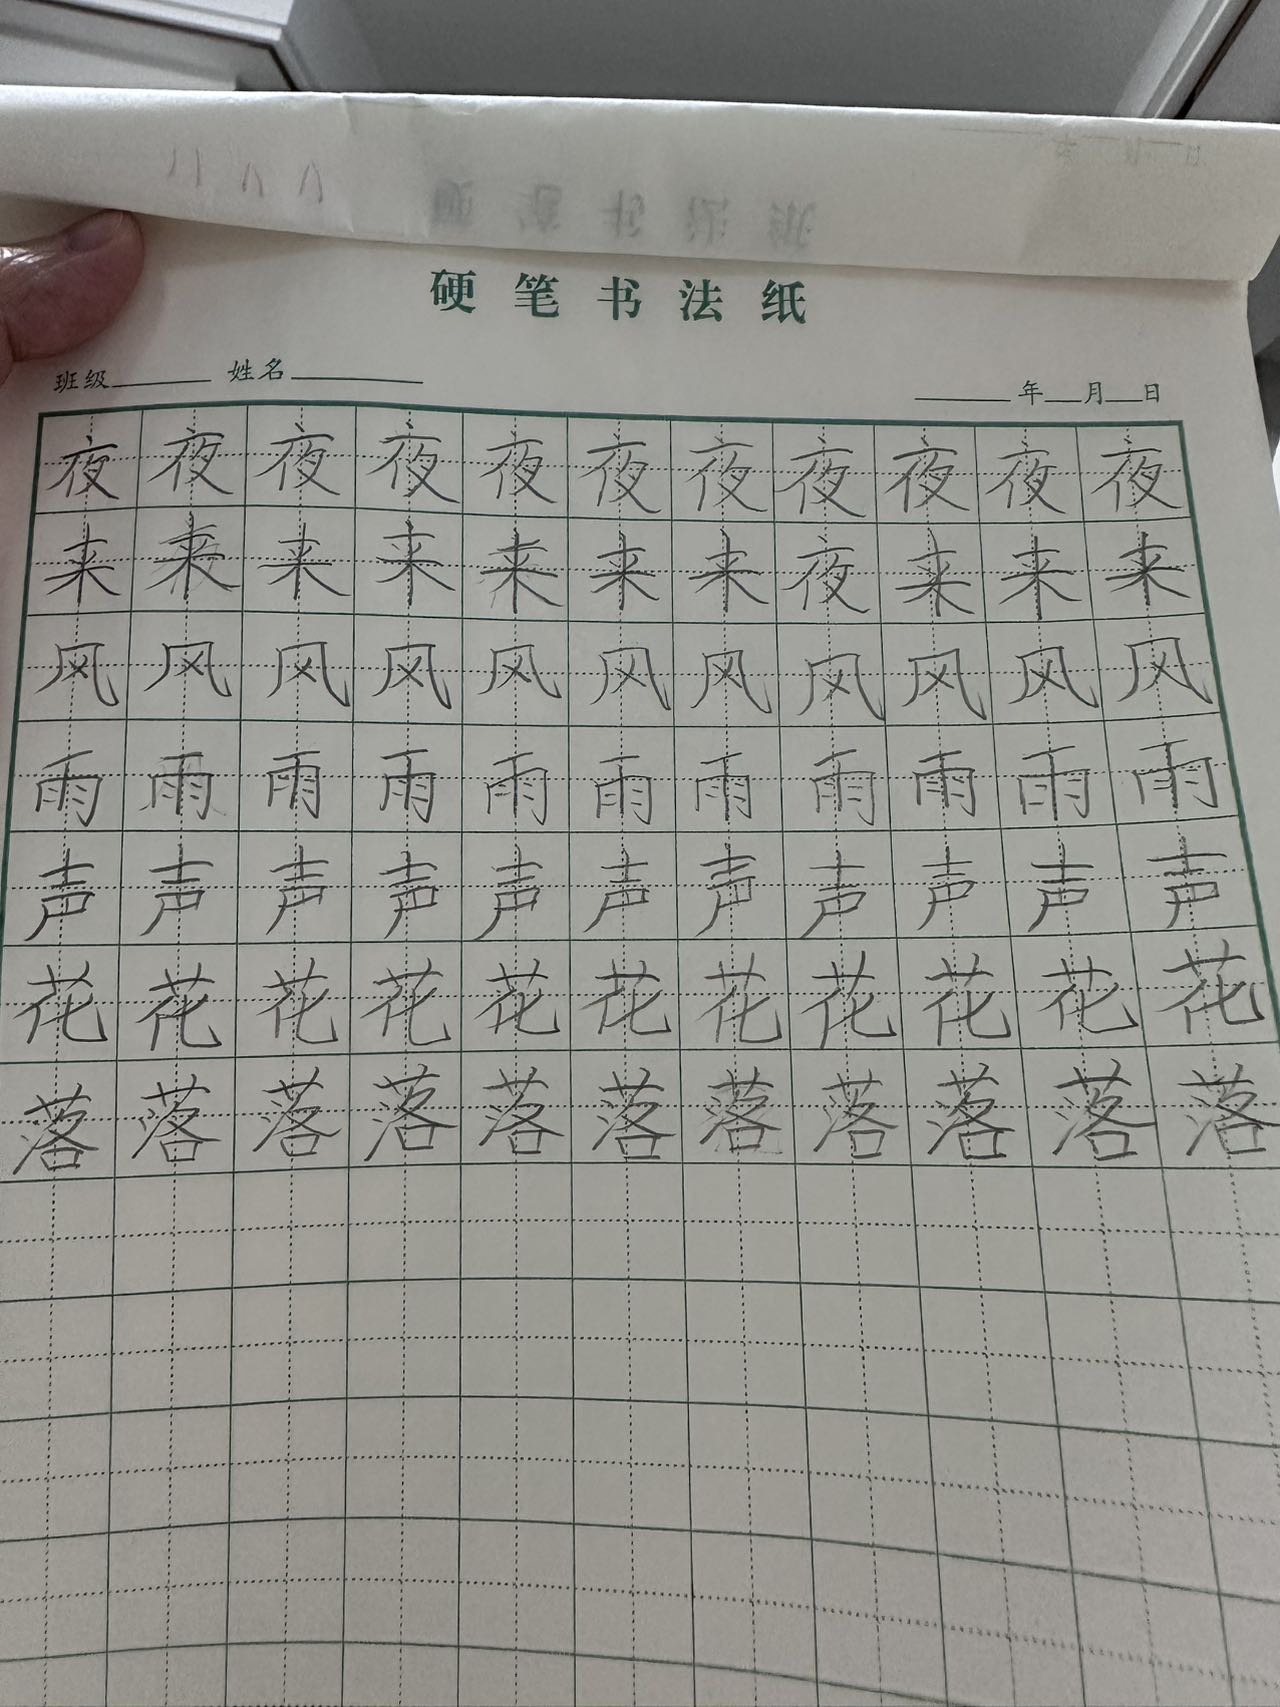 硬笔书法纸
班级 姓名 年 月 日
夜夜夜夜夜夜夜夜夜夜夜
来来来来来来来夜来来来
风风风风风风风风风风风
雨雨雨雨雨雨雨雨雨雨雨
声声声声声声声声声声声
花花花花花花花花花花花
落落落落落落落落落落落